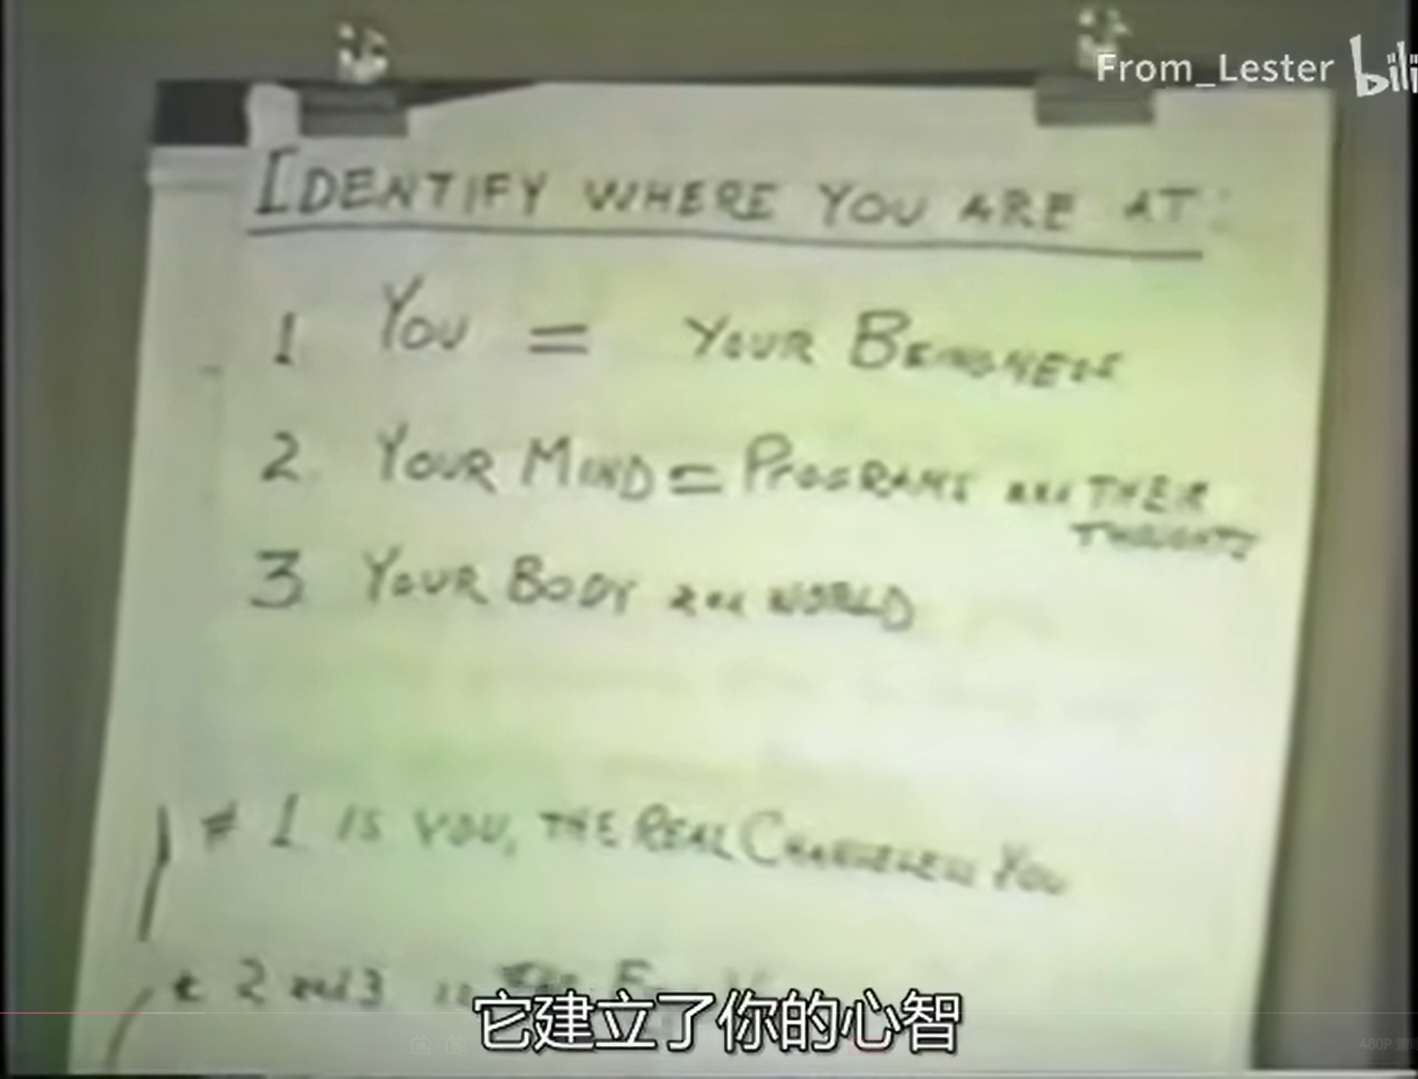 From_Lester bili
IDENTIFY WHERE YOU ARE AT:
1 YOU = YOUR BEINGNESS
2. YOUR MIND = PROGRAMS and THEIR
THOUGHTS
3 YOUR BODY and WORLD
# 1 IS YOU, THE REAL CHANGELESS YOU
2 and 3 is
它建立了你的心智
480P